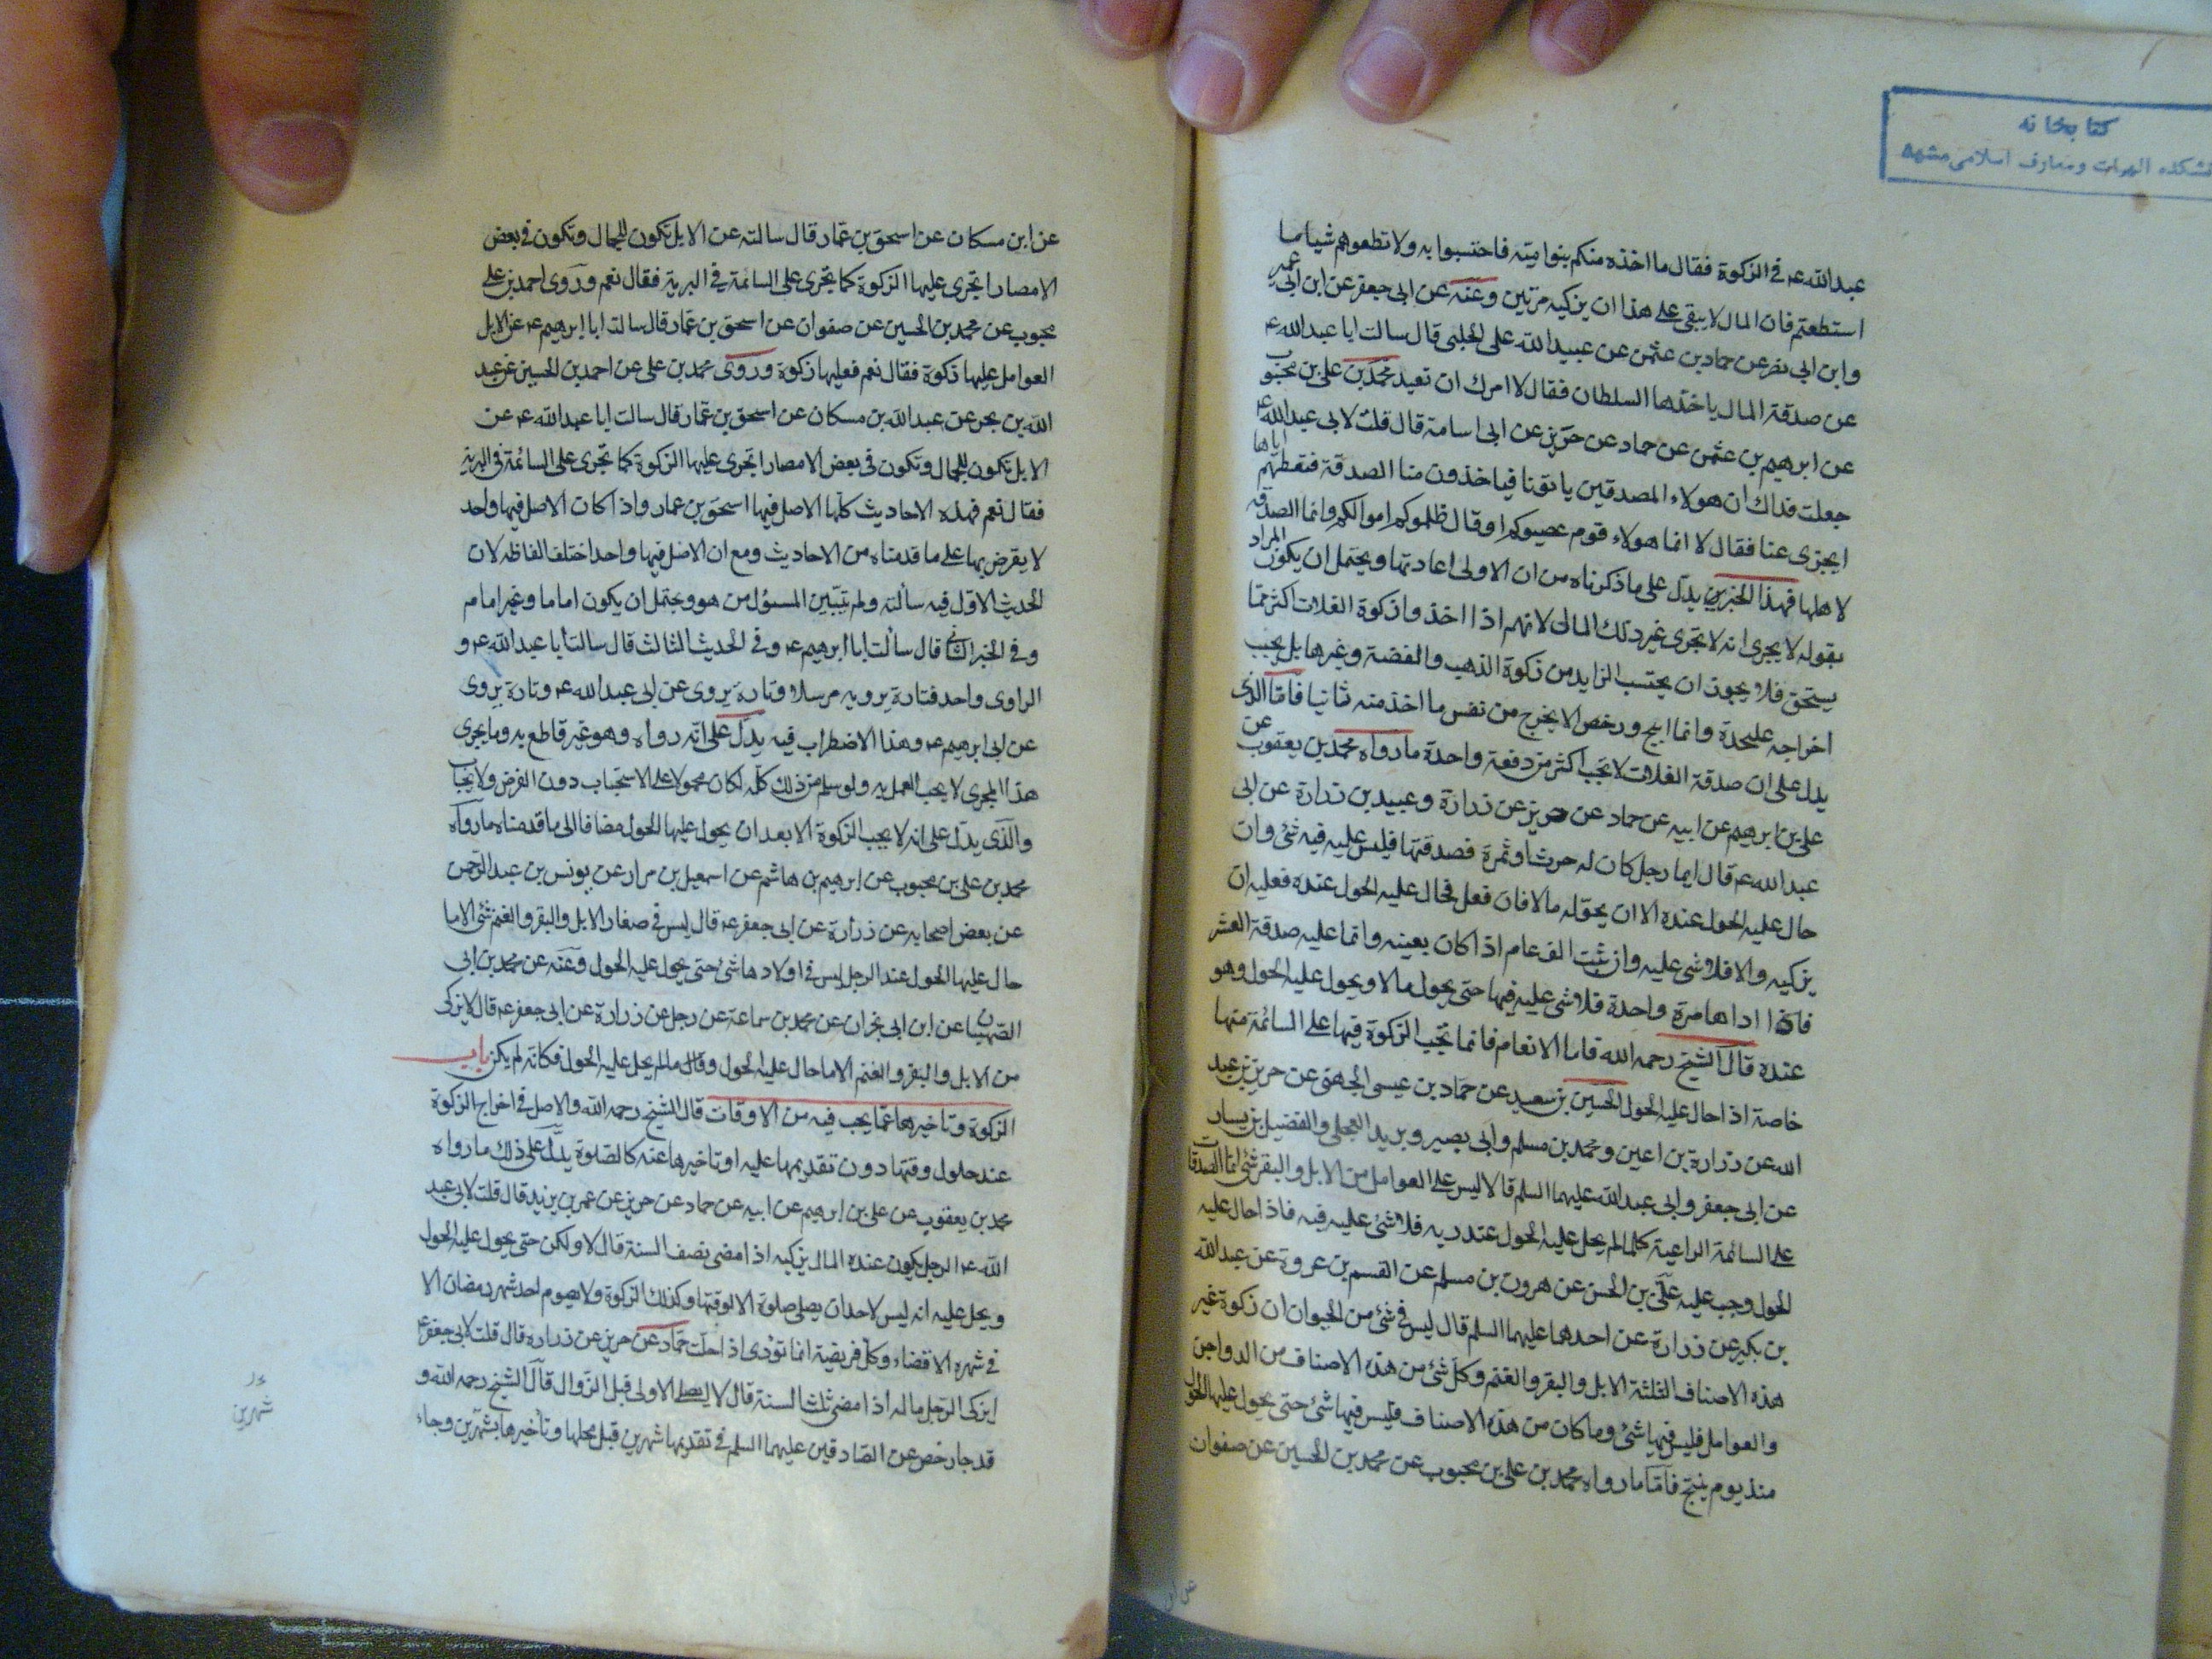 کتابخانه
دانشکده الهیات ومعارف اسلامی مشهد
عبدالله ع في الزكوة فقال ما اخذه منكم بنوامية فاحتسبوا به ولا تطعوهم شيا ما
استطعتم فان المال لا يبقى على هذا ان يزكيه مرتين وعنه عن ابى جعفر عن ابن ابى عمير
وابن ابى نصر عن حماد بن عثمن عن عبيد الله على الحلبى قال سالت ابا عبدالله ع
عن صدقة المال ياخذها السلطان فقال لا امرك ان تعيد محمد بن على بن محبوب
عن ابرهيم بن عثمن عن حماد عن حريز عن ابى اسامة قال قلت لابى عبدالله ع
جعلت فداك ان هولاء المصدقين ياتونا فياخذون منا الصدقة فنعطيهم اياها
ايجزى عنا فقال لا انما هولاء قوم غصبوكم اوقال ظلموكم اموالكم وانما الصدقة
لاهلها فهذا الخبرين يدل على ما ذكرناه من ان الاولى اعادتها ويحتمل ان يكون المراد
بقوله لا يجزى انه لا تجزى غير ذلك المال لانهم اذا اخذوا زكوة الغلات اكثر مما
يستحق فلا يجوز ان يحتسب الزايد من زكوة الذهب والفضة وغيرها بل يجب
اخراجه عليحدة وانما ابيح ورخص الا يخرج من نفس ما اخذ منه ثانيا فاما الذى
يدل على ان صدقة الغلات لا تجب اكثر من دفعة واحدة ما رواه محمد بن يعقوب عن
على بن ابرهيم عن ابيه عن حماد عن حريز عن زرارة وعبيد بن زرارة عن ابى
عبدالله ع قال ايما رجل كان له حرث او ثمرة فصدقتها فليس عليه فيه شئ وان
حال عليه الحول عنده الا ان يحوله مالا فان فعل فحال عليه الحول عنده فعليه ان
يزكيه والا فلا شى عليه وان ثبت الف عام اذا كان بعينه وانما عليه صدقة العشر
فاذا اداها مرة واحدة فلا شى عليه فيها حتى يحول مالا ويحول عليه الحول وهو
عنده قال الشيخ رحمه الله فاما الانعام فانما تجب الزكوة فيها على السائمة منها
خاصة اذا حال عليه الحول الحسين بن سعيد عن حماد بن عيسى الجهنى عن حريز بن عبد
الله عن زرارة بن اعين ومحمد بن مسلم وابى بصير وبريد العجلى والفضيل بن يسار
عن ابى جعفر وابى عبدالله عليهما السلم قالا ليس على العوامل من الابل والبقر شئ انما الصدقات
على السائمة الراعية كلما لم يحل عليه الحول عند ربه فلا شئ عليه فيه فاذا حال عليه
الحول وجب عليه على بن الحسن عن هرون بن مسلم عن القسم بن عروة عن عبدالله
بن بكير عن زرارة عن احدهما عليهما السلم قال ليس في شئ من الحيوان ان زكوة غير
هذه الاصناف الثلثة الابل والبقر والغنم وكل شئ من هذه الاصناف من الدواجن
والعوامل فليس فيها شئ وما كان من هذه الاصناف فليس فيها شئ حتى يحول عليها الحول
منذ يوم ينتج فاما ما رواه محمد بن على بن محبوب عن محمد بن الحسين عن صفوان
عن ابن
عن ابن مسكان عن اسحق بن عمار قال سالته عن الابل تكون للجمال وتكون في بعض
الامصار اتجرى عليها الزكوة كما تجرى على السائمة في البرية فقال نعم وروى احمد بن على
محبوب عن محمد بن الحسين عن صفوان عن اسحق بن عمار قال سالت ابا ابرهيم ع عن الابل
العوامل عليها زكوة فقال نعم فعليها زكوة وروى محمد بن على عن احمد بن الحسين عن عبد
الله بن بحر عن عبدالله بن مسكان عن اسحق بن عمار قال سالت ابا عبدالله ع عن
الابل تكون للجمال وتكون في بعض الامصار اتجرى عليها الزكوة كما تجرى على السائمة في البرية
فقال نعم فهذه الاحاديث كلها الاصل فيها اسحق بن عمار واذا كان الاصل فيها واحد
لا يقرض بها على ما قدمناه من الاحاديث ومع ان الاصل فيها واحد اختلف الفاظه لان
الحديث الاول فيه سألته ولم تبيين المسؤل من هو ويحتمل ان يكون اماما وغير امام
وفي الخبر الثانى قال سألت ابا ابرهيم ع وفي الحديث الثالث قال سالت ابا عبدالله ع و
الراوى واحد فتارة يرويه مرسلا وتارة يروى عن ابى عبدالله ع وتارة يروى
عن ابى ابرهيم ع وهذا الاضطراب فيه يدل على انه رواه وهو غير قاطع به وما يجرى
هذا المجرى لا يجب العمل به ولو سلم من ذلك كله لكان محمولا على الاستحباب دون الفرض ولايجاب
والذى يدل على انه لا يجب الزكوة الا بعد ان يحول عليها الحول مضافا الى ما قدمناه ما رواه
محمد بن على بن محبوب عن ابرهيم بن هاشم عن اسمعيل بن مرار عن يونس بن عبد الرحمن
عن بعض اصحابه عن زرارة عن ابى جعفر ع قال ليس في صغار الابل والبقر والغنم شئ الا ما
حال عليها الحول عند الرجل ليس في اولادها شئ حتى يحول عليه الحول وعنه عن محمد بن ابى
الصهبان عن ابن ابى نجران عن محمد بن سماعة عن رجل عن زرارة عن ابى جعفر ع قال لا يزكى
من الابل والبقر والغنم الا ما حال عليه الحول وقال ما لم يحل عليه الحول فكانه لم يكن باب
الزكوة وتاخيرها عما يجب فيه من الاوقات قال الشيخ رحمه الله والاصل في اخراج الزكوة
عند حلول وقتها دون تقديمها عليه او تاخيرها عنه كالصلوة يدل على ذلك ما رواه
محمد بن يعقوب عن على بن ابرهيم عن ابيه عن حماد عن حريز عن عمر بن يزيد قال قلت لابى عبد
الله ع الرجل يكون عنده المال يزكيه اذا مضى نصف السنة قال لا ولكن حتى يحول عليه الحول
ويحل عليه انه ليس لاحد ان يصلى صلوة الا لوقتها وكذلك الزكوة ولا يصوم احد شهر رمضان الا
في شهره الا قضاء وكل فريضة انما تؤدى اذا حلت حماد عن حريز عن زرارة قال قلت لابى جعفر ع
ايزكى الرجل ماله اذا مضى ثلث السنة قال لا ايصلى الاولى قبل الزوال قال الشيخ رحمه الله و
قد جا رخص عن الصادقين عليهما السلم في تقديمها شهرين قبل محلها وتأخيرها بشهرين وجاء
شهرين